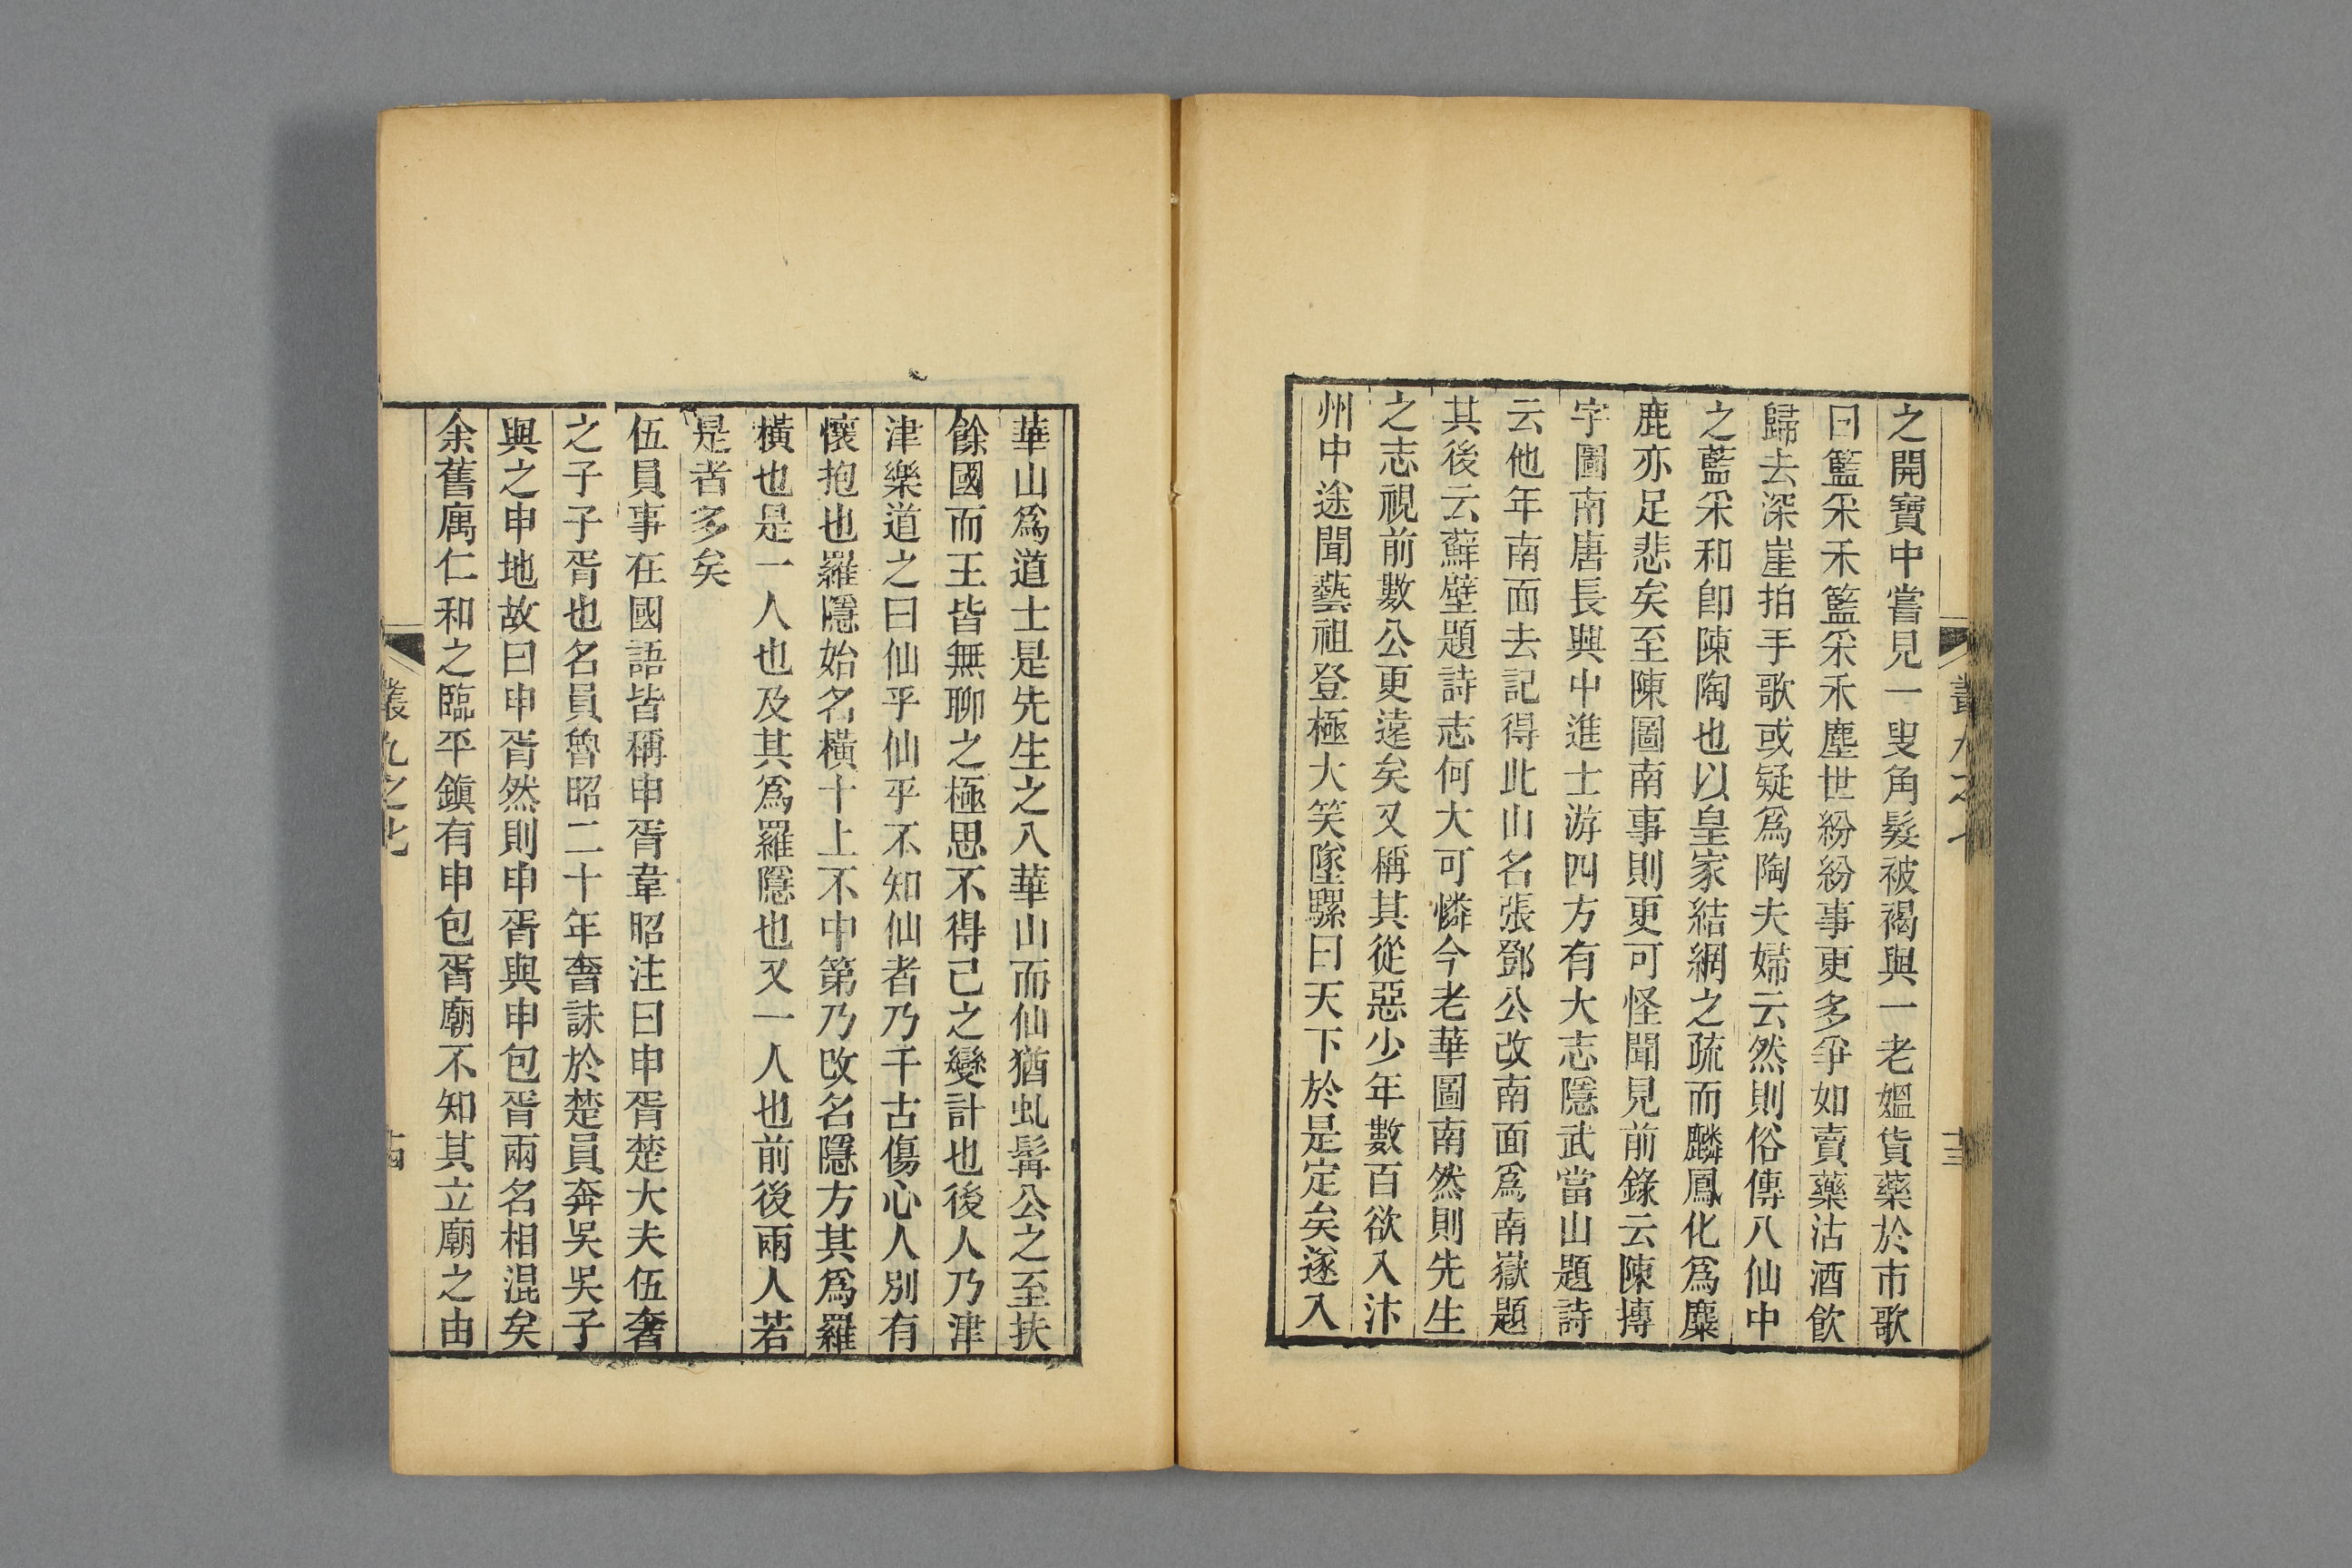 之開寶中嘗見一叟角髮被褐與一老媼貨藥於市歌
曰籃采禾籃采禾塵世紛紛事更多爭如賣藥沽酒飲
歸去深崖拍手歌或疑爲陶夫婦云然則俗傳八仙中
之藍采和卽陳陶也以皇家結網之疏而麟鳳化爲麋
鹿亦足悲矣至陳圖南事則更可怪聞見前錄云陳摶
字圖南唐長興中進士游四方有大志隱武當山題詩
云他年南面去記得此山名張鄧公改南面爲南嶽題
其後云蘇壁題詩志何大可憐今老華圖南然則先生
之志視前數公更遠矣又稱其從惡少年數百欲入汴
州中途聞藝祖登極大笑墜騾曰天下於是定矣遂入
華山爲道士是先生之入華山而仙猶虬髯公之至扶
餘國而王皆無聊之極思不得已之變計也後人乃津
津樂道之曰仙乎仙乎不知仙者乃千古傷心人別有
懷抱也羅隱始名橫十上不中第乃改名隱方其爲羅
橫也是一人也及其爲羅隱也又一人也前後兩人若
是者多矣
伍員事在國語皆稱申胥韋昭注曰申胥楚大夫伍奢
之子子胥也名員魯昭二十年奢誅於楚員奔吳吳子
與之申地故曰申胥然則申胥與申包胥兩名相混矣
余舊寓仁和之臨平鎭有申包胥廟不知其立廟之由
叢九之七